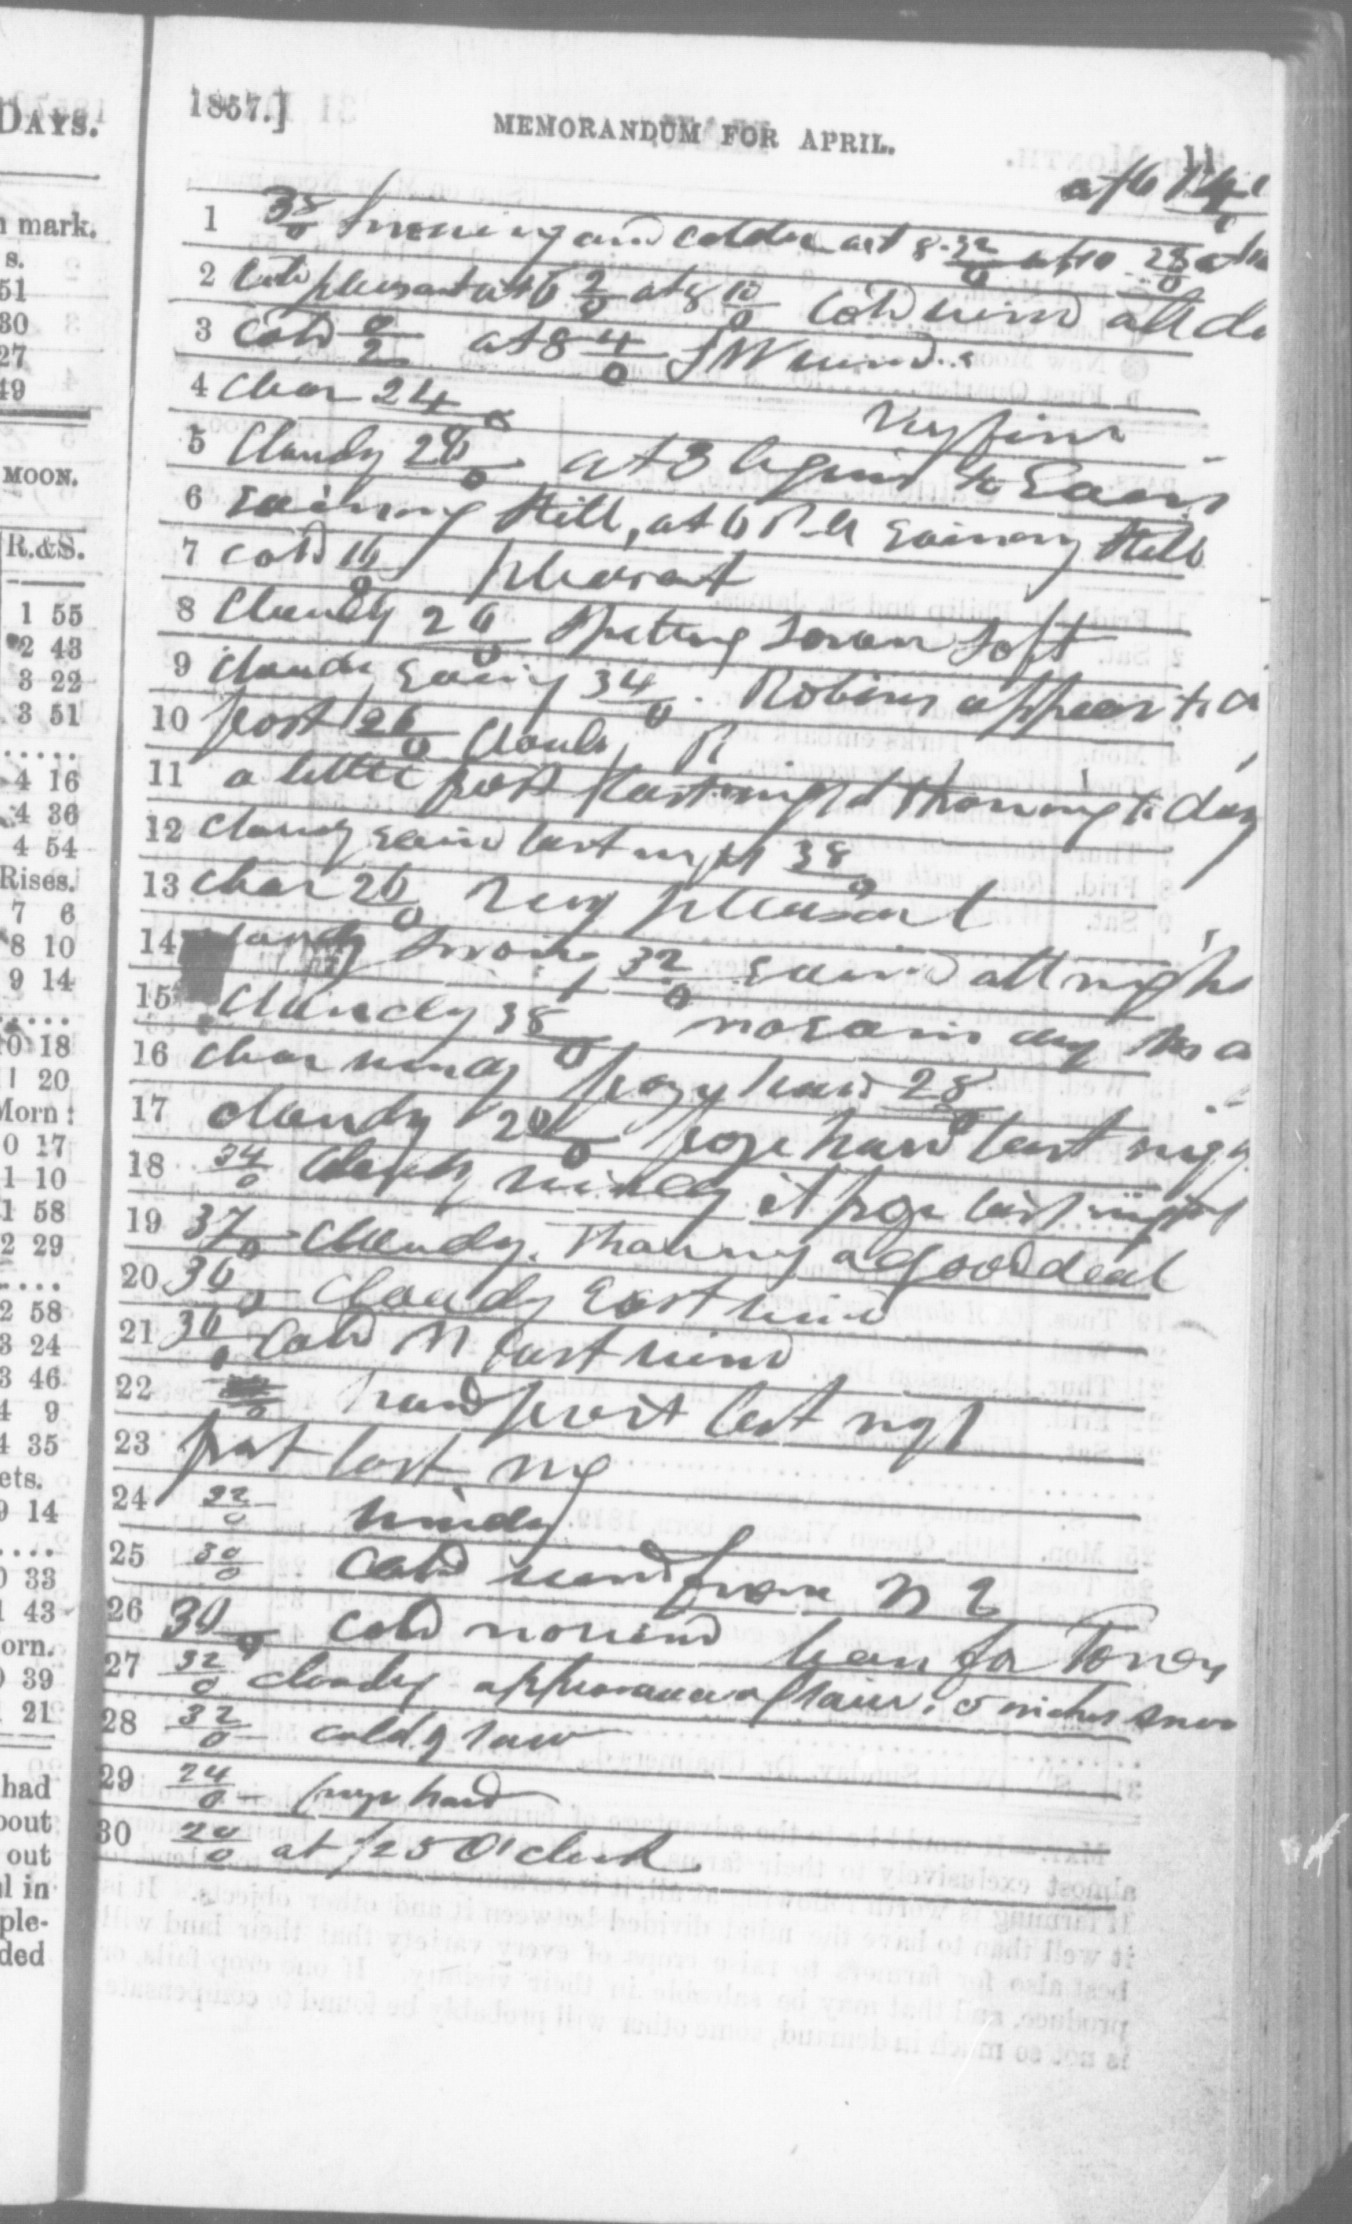 DAYS.
n mark.
s.
51
30
27
49
MOON.
R.&S.
1 55
2 43
3 22
3 51
.....
4 16
4 36
4 54
Rises.
7 6
8 10
9 14
.....
10 18
20
Morn:
0 17
1 10
1 58
2 29
....
2 58
3 24
3 46
4 9
4 35
ets.
9 14
....
0 33
1 43
orn.
0 39
21
had
bout
out
al in
ple-
ded
1857.]
MEMORANDUM FOR APRIL.
11
at 6
1 38/0 snowing and colder at 8 32/0 at 10 28/0
2 pleasant at 6 2/0 at 8 10/0 cold wind all da
3 cold 0/2 at 8 4/0 S W wind
4 clear 24/0 very fine
5 Cloudy 28/0 at 3 begins to Rain
6 raining still, at 6 P.M raining still
7 cold 16/0 pleasant
8 Cloudy 26/0 Spitting Snow Soft
9 Cloudy rainy 34/0 Robins appear to d
10 frost 26/0 Cloudy
11 a little frost last night thawing to day
12 cloudy rain last night 38/0
13 clear 26/0 very pleasant
14 snowing 32/0 rained all nigh
15 Cloudy 38/0 no rain day
16 clear windy froze hard 28/0
17 cloudy 20/0 froze hard last nig
18 34/0 cloudy windy it froze last night
19 37/0 Cloudy. Thawing a good deal
20 36/0 Cloudy East wind
21 36/0 Cold N East wind
22 hard frost last nigt
23 frost last nig
24 32/0 windy
25 30/0 cold wind from N E
26 30/0 cold no wind
27 32/0 cloudy appearance of rain; 5 inches snow
28 32/0 cold & raw
29 24/0 froze hard
30 20/0 at 5 O'clock